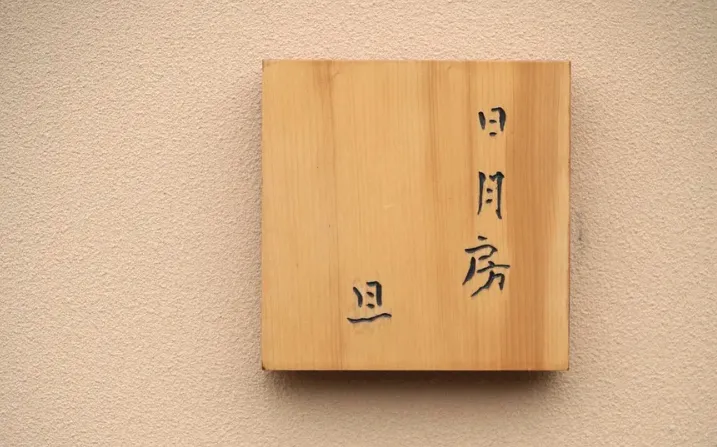 日月房
旦